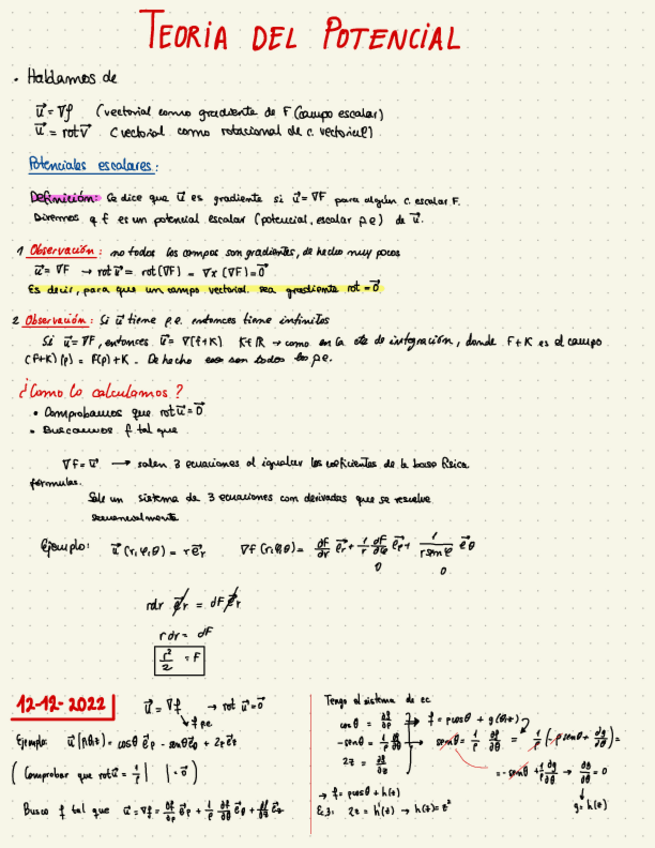 TEORIA DEL POTENCIAL
• Hablamos de
u⃗ = ∇f (vectorial como gradiente de F (campo escalar)
u⃗ = rot v⃗ (vectorial como rotacional de c. vectorial)
Potenciales escalares:
Definición: Se dice que u⃗ es gradiente si u⃗ = ∇F para algún c. escalar F.
Diremos q f es un potencial escalar (potencial, escalar p.e) de u⃗.
1 Observación: no todos los campos son gradientes, de hecho muy pocos
u⃗ = ∇F → rot u⃗ = rot (∇F) = ∇x (∇F) = 0⃗
Es decir, para que un campo vectorial sea gradiente rot = 0⃗
2 Observación: Si u⃗ tiene p.e. entonces tiene infinitos
Si u⃗ = ∇F, entonces u⃗ = ∇(f+K) K∈ℝ → como en la cte de integración, donde F+K es el campo
(F+K)(p) = F(p)+K. De hecho esos son todos los p.e.
¿Como lo calculamos?
• Comprobamos que rot u⃗ = 0⃗
• Buscamos f tal que
∇f = u⃗ → salen 3 ecuaciones al igualar los coeficientes de la base física
fórmulas.
Sale un sistema de 3 ecuaciones con derivadas que se resuelve
secuencialmente
Ejemplo: u⃗ (r,φ,θ) = r e⃗r ∇f (r,φ,θ) = dF/dr e⃗r + 1/r dF/dφ e⃗φ + 1/(r sen φ) e⃗θ
0 0
rdr e⃗r = dF e⃗r
rdr = dF
r²/2 = F
12-12-2022
u⃗ = ∇f → rot u⃗ = 0⃗
f p.e
Ejemplo: u⃗(ρ,θ,z) = cosθ e⃗ρ - senθ e⃗θ + 2z e⃗z
(Comprobar que rot u⃗ = 1/ρ | | = 0⃗)
Busco f tal que u⃗ = ∇f = ∂f/∂ρ e⃗ρ + 1/ρ ∂f/∂θ e⃗θ + ∂f/∂z e⃗z
Tengo el sistema de ec
cosθ = ∂f/∂ρ → f = ρcosθ + g(θ,z)
-senθ = 1/ρ ∂f/∂θ → senθ = 1/ρ ∂f/∂θ = 1/ρ (-ρsenθ + ∂g/∂θ) =
2z = ∂f/∂z
= -senθ + 1/ρ ∂g/∂θ → ∂g/∂θ = 0
→ f = ρcosθ + h(z)
g = h(z)
Ec3: 2z = h'(z) → h(z) = z²